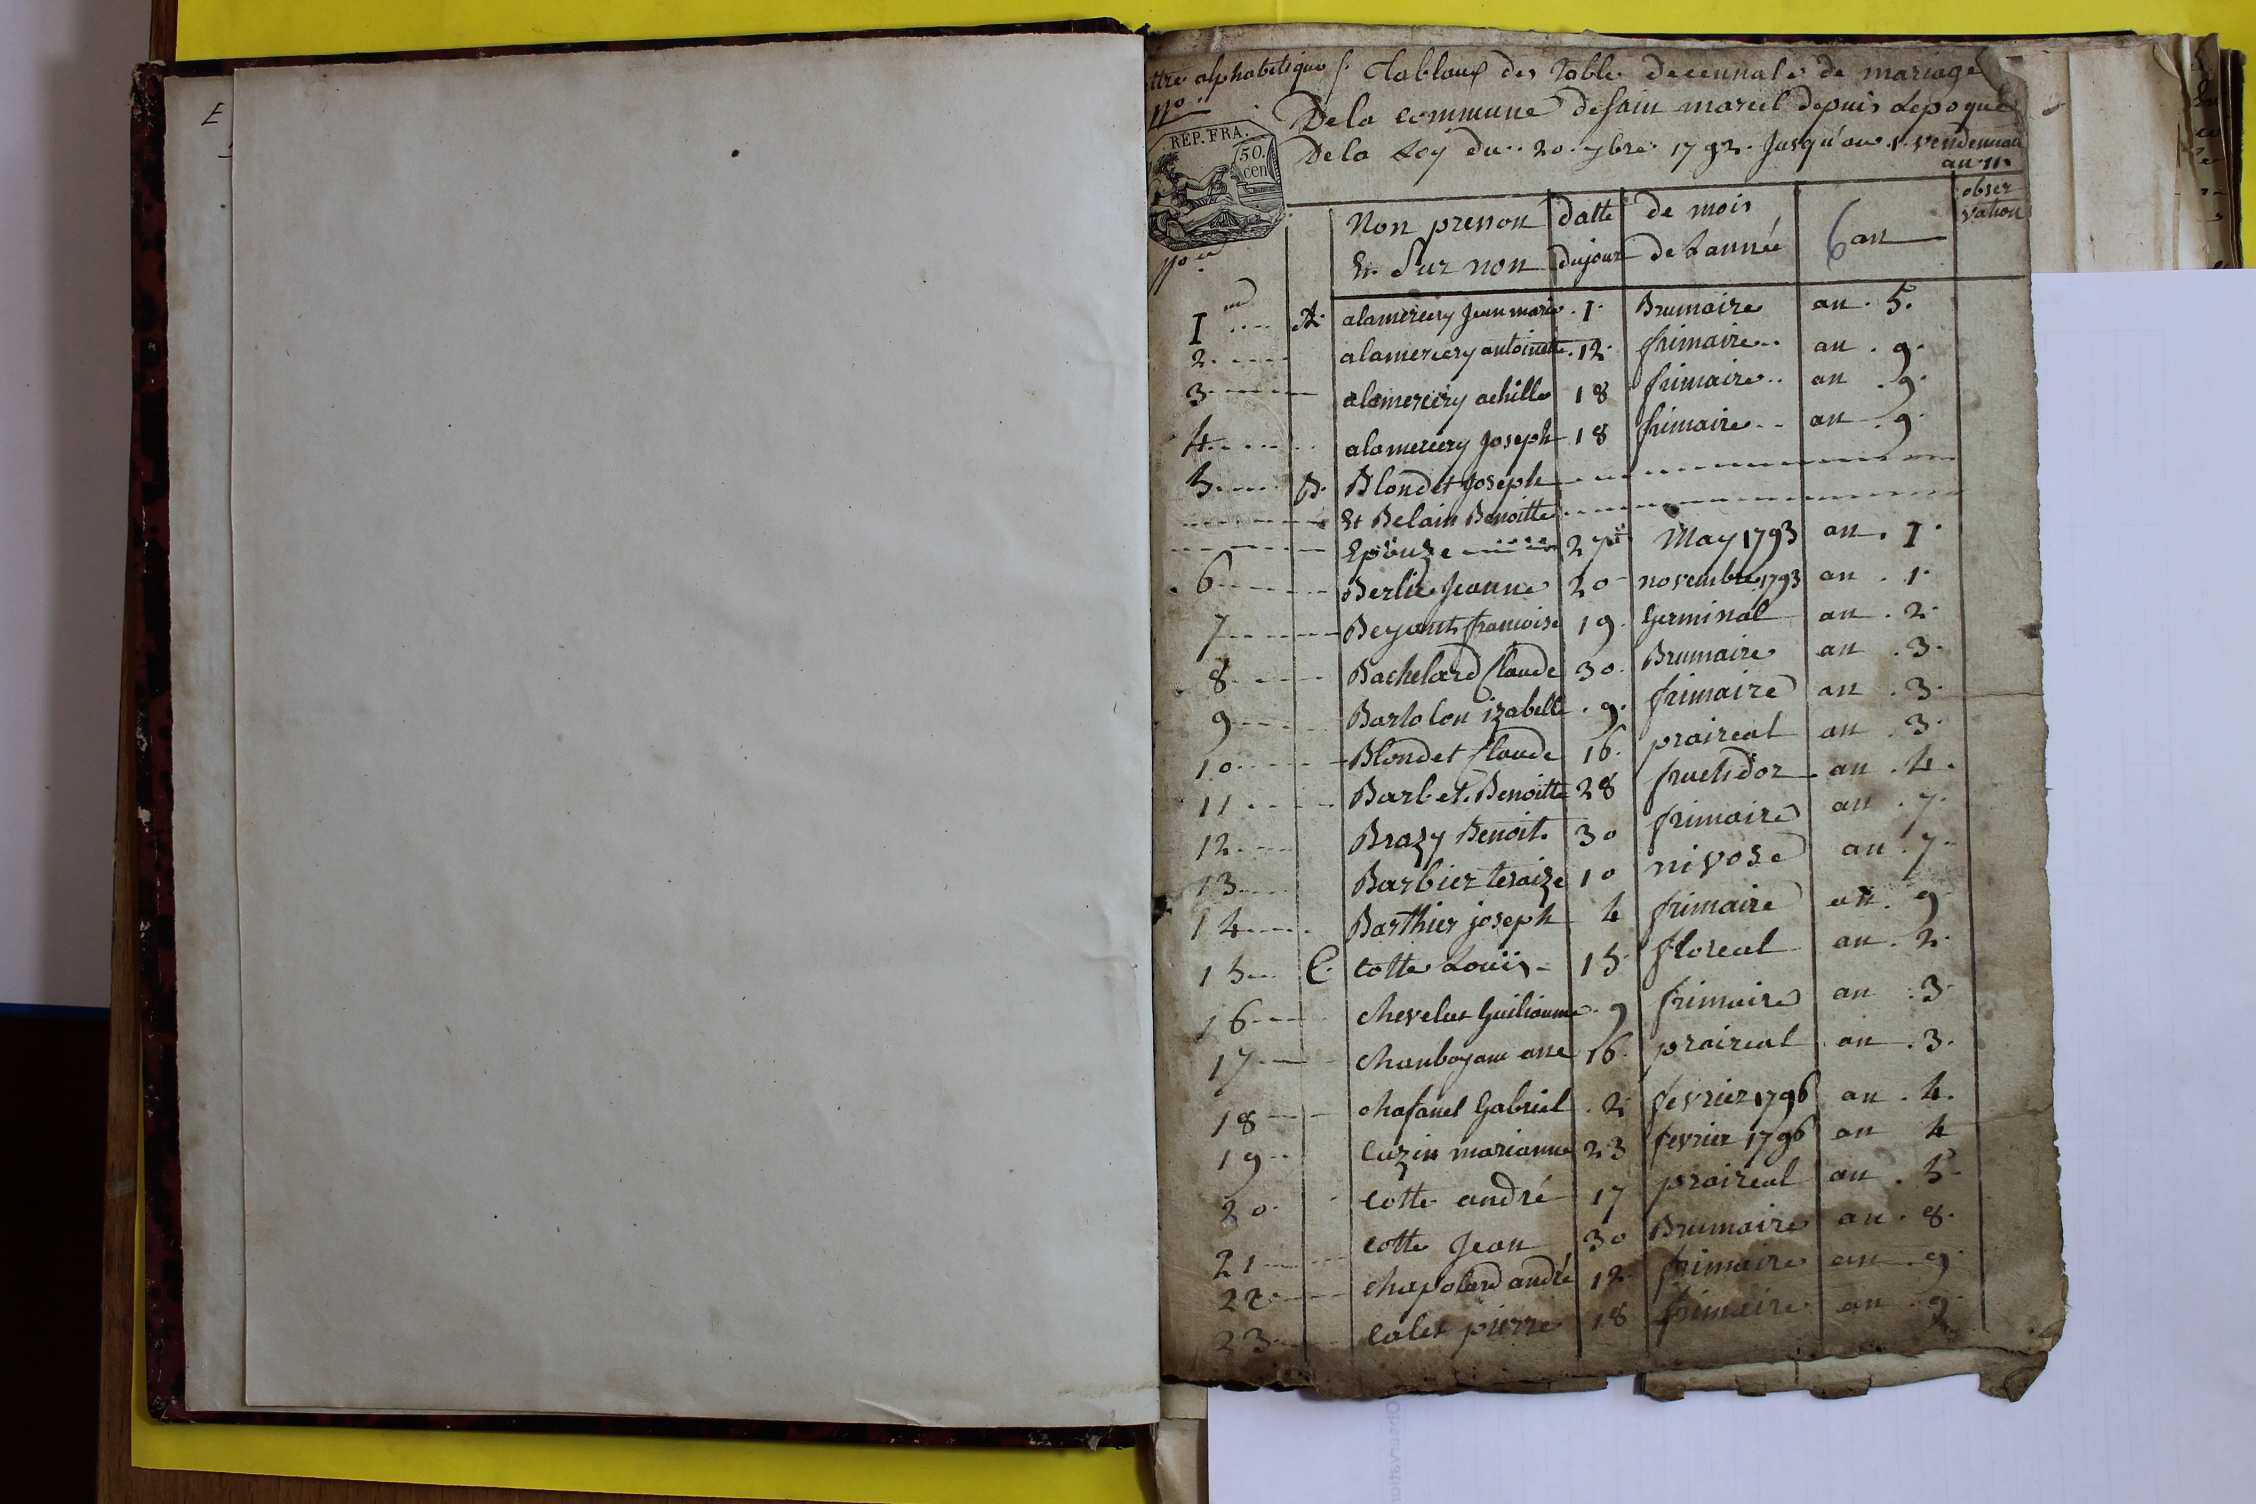 E
ttre alphabetique /. Tableau des Table decennale de mariage
De la commune de sain marcel depuis Lepoque
De la Loÿ du 20. 7bre 1792. Jusqu'au 1. vendemiaire
an 11.
REP. FRA.
50.
cen
Non prenon datte de mois 6 an obser
Et Sur non du jour de Lannée vation
1 A. alamercery Jean marie 1. Brumaire an 5.
2 alamercery antoinette 12. frimaire an 9.
3 alamercery achille 18 frimaire an 9.
4 alamercery Joseph 18 frimaire an 9.
5 B. Blondet Joseph
Et Belain Benoitte
Epouze 27 May 1793 an 1.
6 Berlie Jeanne 20 novembre 1793 an 1.
7 Beyant francoise 19. Germinal an 2.
8 Bachelard Claude 30. Brumaire an 3.
9 Bartolon izabelle 9. frimaire an 3.
10 Blondet Claude 16. praireal an 3.
11 Barbet Benoitte 28 fructidor an 4.
12 Brazy Benoit 30 frimaire an 7.
13 Barbier teraize 10 nivose an 7.
14 Barthier joseph 4 frimaire an 9
15 C. Cotte Louïs 15 floreal an 2.
16 chevelut Guilioume 9 frimaire an 3.
17 chanboyant ane 16. praireal an 3.
18 chafanel Gabriel 2. fevrier 1796 an 4.
19 Cuzin marianne 23 fevrier 1796 an 4
20 Cotte andré 17 praireal an 5.
21 Cotte Jean 30 Brumaire an 8.
22 chapolard andré 12. frimaire an 9.
23 Calet pierre 18 frimaire an 9.